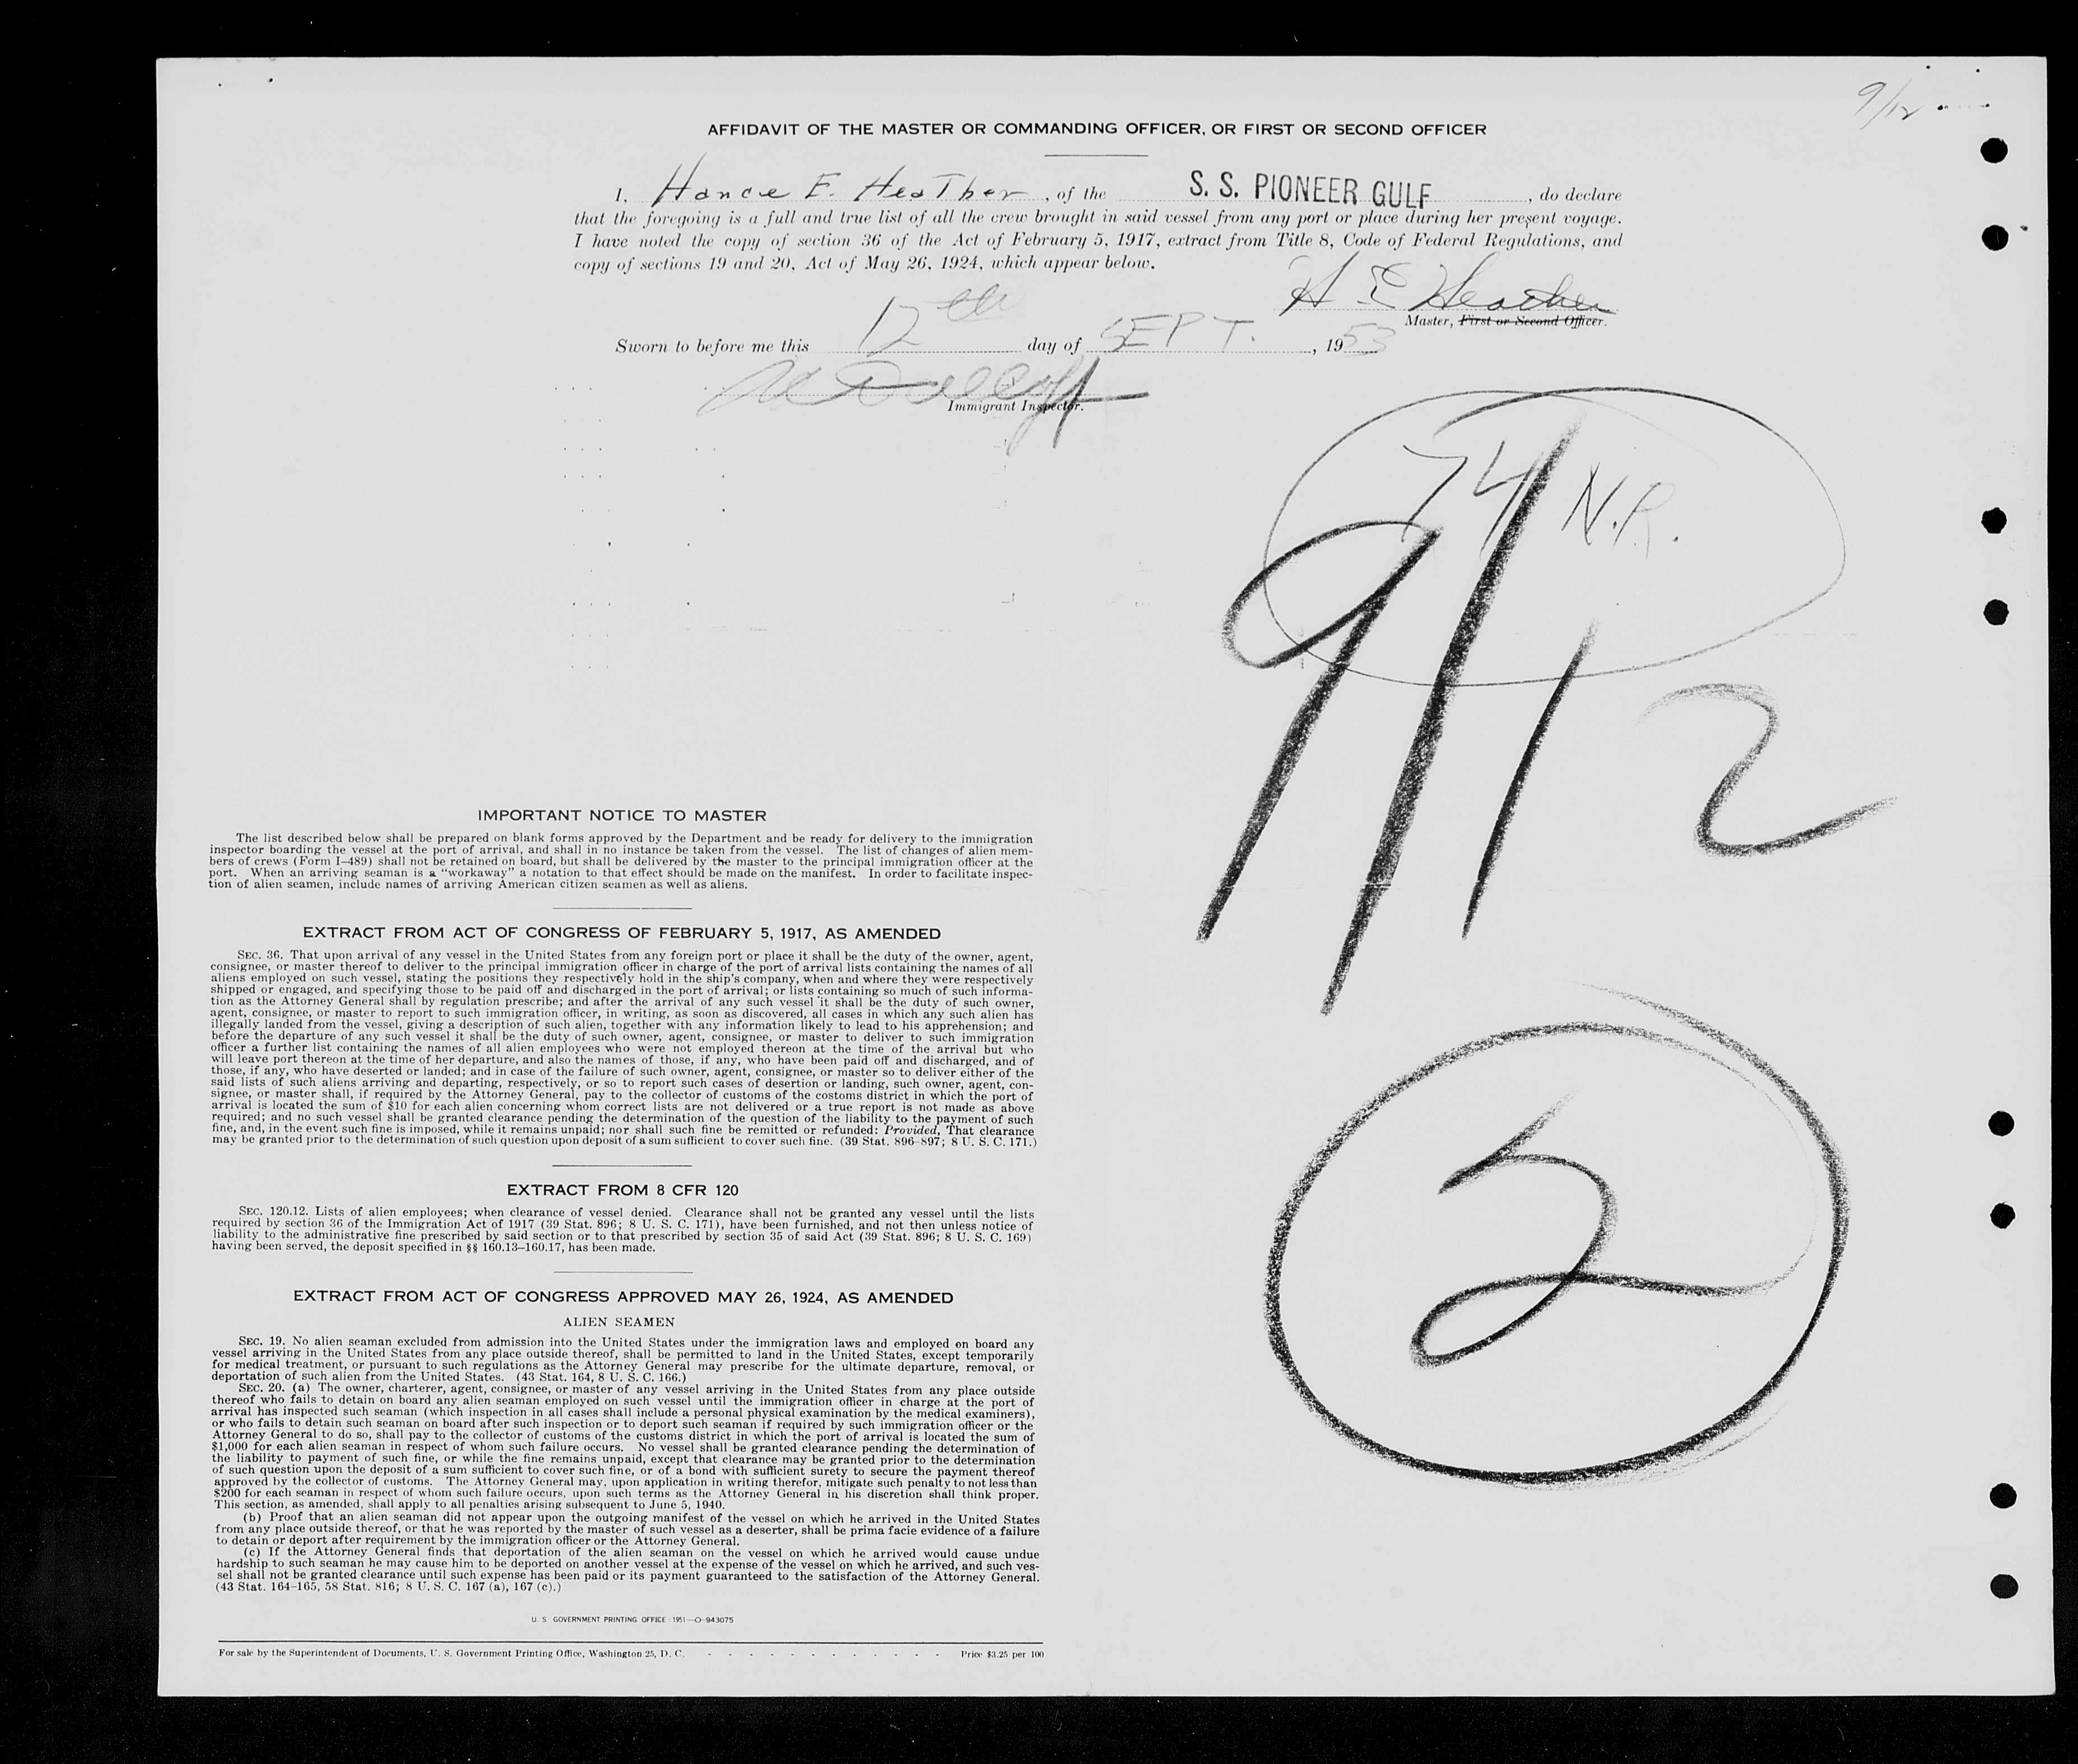 9/12
AFFIDAVIT OF THE MASTER OR COMMANDING OFFICER, OR FIRST OR SECOND OFFICER
I, Hance E. Heather, of the S. S. PIONEER GULF, do declare
that the foregoing is a full and true list of all the crew brought in said vessel from any port or place during her present voyage.
I have noted the copy of section 36 of the Act of February 5, 1917, extract from Title 8, Code of Federal Regulations, and
copy of sections 19 and 20, Act of May 26, 1924, which appear below.
H E Heather
Master, First or Second Officer.
Sworn to before me this 12th day of SEPT., 1953
Immigrant Inspector.
74 N.R.
9/12
2
IMPORTANT NOTICE TO MASTER
The list described below shall be prepared on blank forms approved by the Department and be ready for delivery to the immigration
inspector boarding the vessel at the port of arrival, and shall in no instance be taken from the vessel. The list of changes of alien mem-
bers of crews (Form I–489) shall not be retained on board, but shall be delivered by the master to the principal immigration officer at the
port. When an arriving seaman is a "workaway" a notation to that effect should be made on the manifest. In order to facilitate inspec-
tion of alien seamen, include names of arriving American citizen seamen as well as aliens.
EXTRACT FROM ACT OF CONGRESS OF FEBRUARY 5, 1917, AS AMENDED
SEC. 36. That upon arrival of any vessel in the United States from any foreign port or place it shall be the duty of the owner, agent,
consignee, or master thereof to deliver to the principal immigration officer in charge of the port of arrival lists containing the names of all
aliens employed on such vessel, stating the positions they respectively hold in the ship's company, when and where they were respectively
shipped or engaged, and specifying those to be paid off and discharged in the port of arrival; or lists containing so much of such informa-
tion as the Attorney General shall by regulation prescribe; and after the arrival of any such vessel it shall be the duty of such owner,
agent, consignee, or master to report to such immigration officer, in writing, as soon as discovered, all cases in which any such alien has
illegally landed from the vessel, giving a description of such alien, together with any information likely to lead to his apprehension; and
before the departure of any such vessel it shall be the duty of such owner, agent, consignee, or master to deliver to such immigration
officer a further list containing the names of all alien employees who were not employed thereon at the time of the arrival but who
will leave port thereon at the time of her departure, and also the names of those, if any, who have been paid off and discharged, and of
those, if any, who have deserted or landed; and in case of the failure of such owner, agent, consignee, or master so to deliver either of the
said lists of such aliens arriving and departing, respectively, or so to report such cases of desertion or landing, such owner, agent, con-
signee, or master shall, if required by the Attorney General, pay to the collector of customs of the costoms district in which the port of
arrival is located the sum of $10 for each alien concerning whom correct lists are not delivered or a true report is not made as above
required; and no such vessel shall be granted clearance pending the determination of the question of the liability to the payment of such
fine, and, in the event such fine is imposed, while it remains unpaid; nor shall such fine be remitted or refunded: Provided, That clearance
may be granted prior to the determination of such question upon deposit of a sum sufficient to cover such fine. (39 Stat. 896–897; 8 U. S. C. 171.)
EXTRACT FROM 8 CFR 120
SEC. 120.12. Lists of alien employees; when clearance of vessel denied. Clearance shall not be granted any vessel until the lists
required by section 36 of the Immigration Act of 1917 (39 Stat. 896; 8 U. S. C. 171), have been furnished, and not then unless notice of
liability to the administrative fine prescribed by said section or to that prescribed by section 35 of said Act (39 Stat. 896; 8 U. S. C. 169)
having been served, the deposit specified in §§ 160.13–160.17, has been made.
EXTRACT FROM ACT OF CONGRESS APPROVED MAY 26, 1924, AS AMENDED
ALIEN SEAMEN
SEC. 19. No alien seaman excluded from admission into the United States under the immigration laws and employed on board any
vessel arriving in the United States from any place outside thereof, shall be permitted to land in the United States, except temporarily
for medical treatment, or pursuant to such regulations as the Attorney General may prescribe for the ultimate departure, removal, or
deportation of such alien from the United States. (43 Stat. 164, 8 U. S. C. 166.)
SEC. 20. (a) The owner, charterer, agent, consignee, or master of any vessel arriving in the United States from any place outside
thereof who fails to detain on board any alien seaman employed on such vessel until the immigration officer in charge at the port of
arrival has inspected such seaman (which inspection in all cases shall include a personal physical examination by the medical examiners),
or who fails to detain such seaman on board after such inspection or to deport such seaman if required by such immigration officer or the
Attorney General to do so, shall pay to the collector of customs of the customs district in which the port of arrival is located the sum of
$1,000 for each alien seaman in respect of whom such failure occurs. No vessel shall be granted clearance pending the determination of
the liability to payment of such fine, or while the fine remains unpaid, except that clearance may be granted prior to the determination
of such question upon the deposit of a sum sufficient to cover such fine, or of a bond with sufficient surety to secure the payment thereof
approved by the collector of customs. The Attorney General may, upon application in writing therefor, mitigate such penalty to not less than
$200 for each seaman in respect of whom such failure occurs, upon such terms as the Attorney General in his discretion shall think proper.
This section, as amended, shall apply to all penalties arising subsequent to June 5, 1940.
(b) Proof that an alien seaman did not appear upon the outgoing manifest of the vessel on which he arrived in the United States
from any place outside thereof, or that he was reported by the master of such vessel as a deserter, shall be prima facie evidence of a failure
to detain or deport after requirement by the immigration officer or the Attorney General.
(c) If the Attorney General finds that deportation of the alien seaman on the vessel on which he arrived would cause undue
hardship to such seaman he may cause him to be deported on another vessel at the expense of the vessel on which he arrived, and such ves-
sel shall not be granted clearance until such expense has been paid or its payment guaranteed to the satisfaction of the Attorney General.
(43 Stat. 164–165, 58 Stat. 816; 8 U. S. C. 167 (a), 167 (c).)
U. S. GOVERNMENT PRINTING OFFICE : 1951—O-943075
For sale by the Superintendent of Documents, U. S. Government Printing Office, Washington 25, D. C. - - - - - - - - - - - Price $3.25 per 100